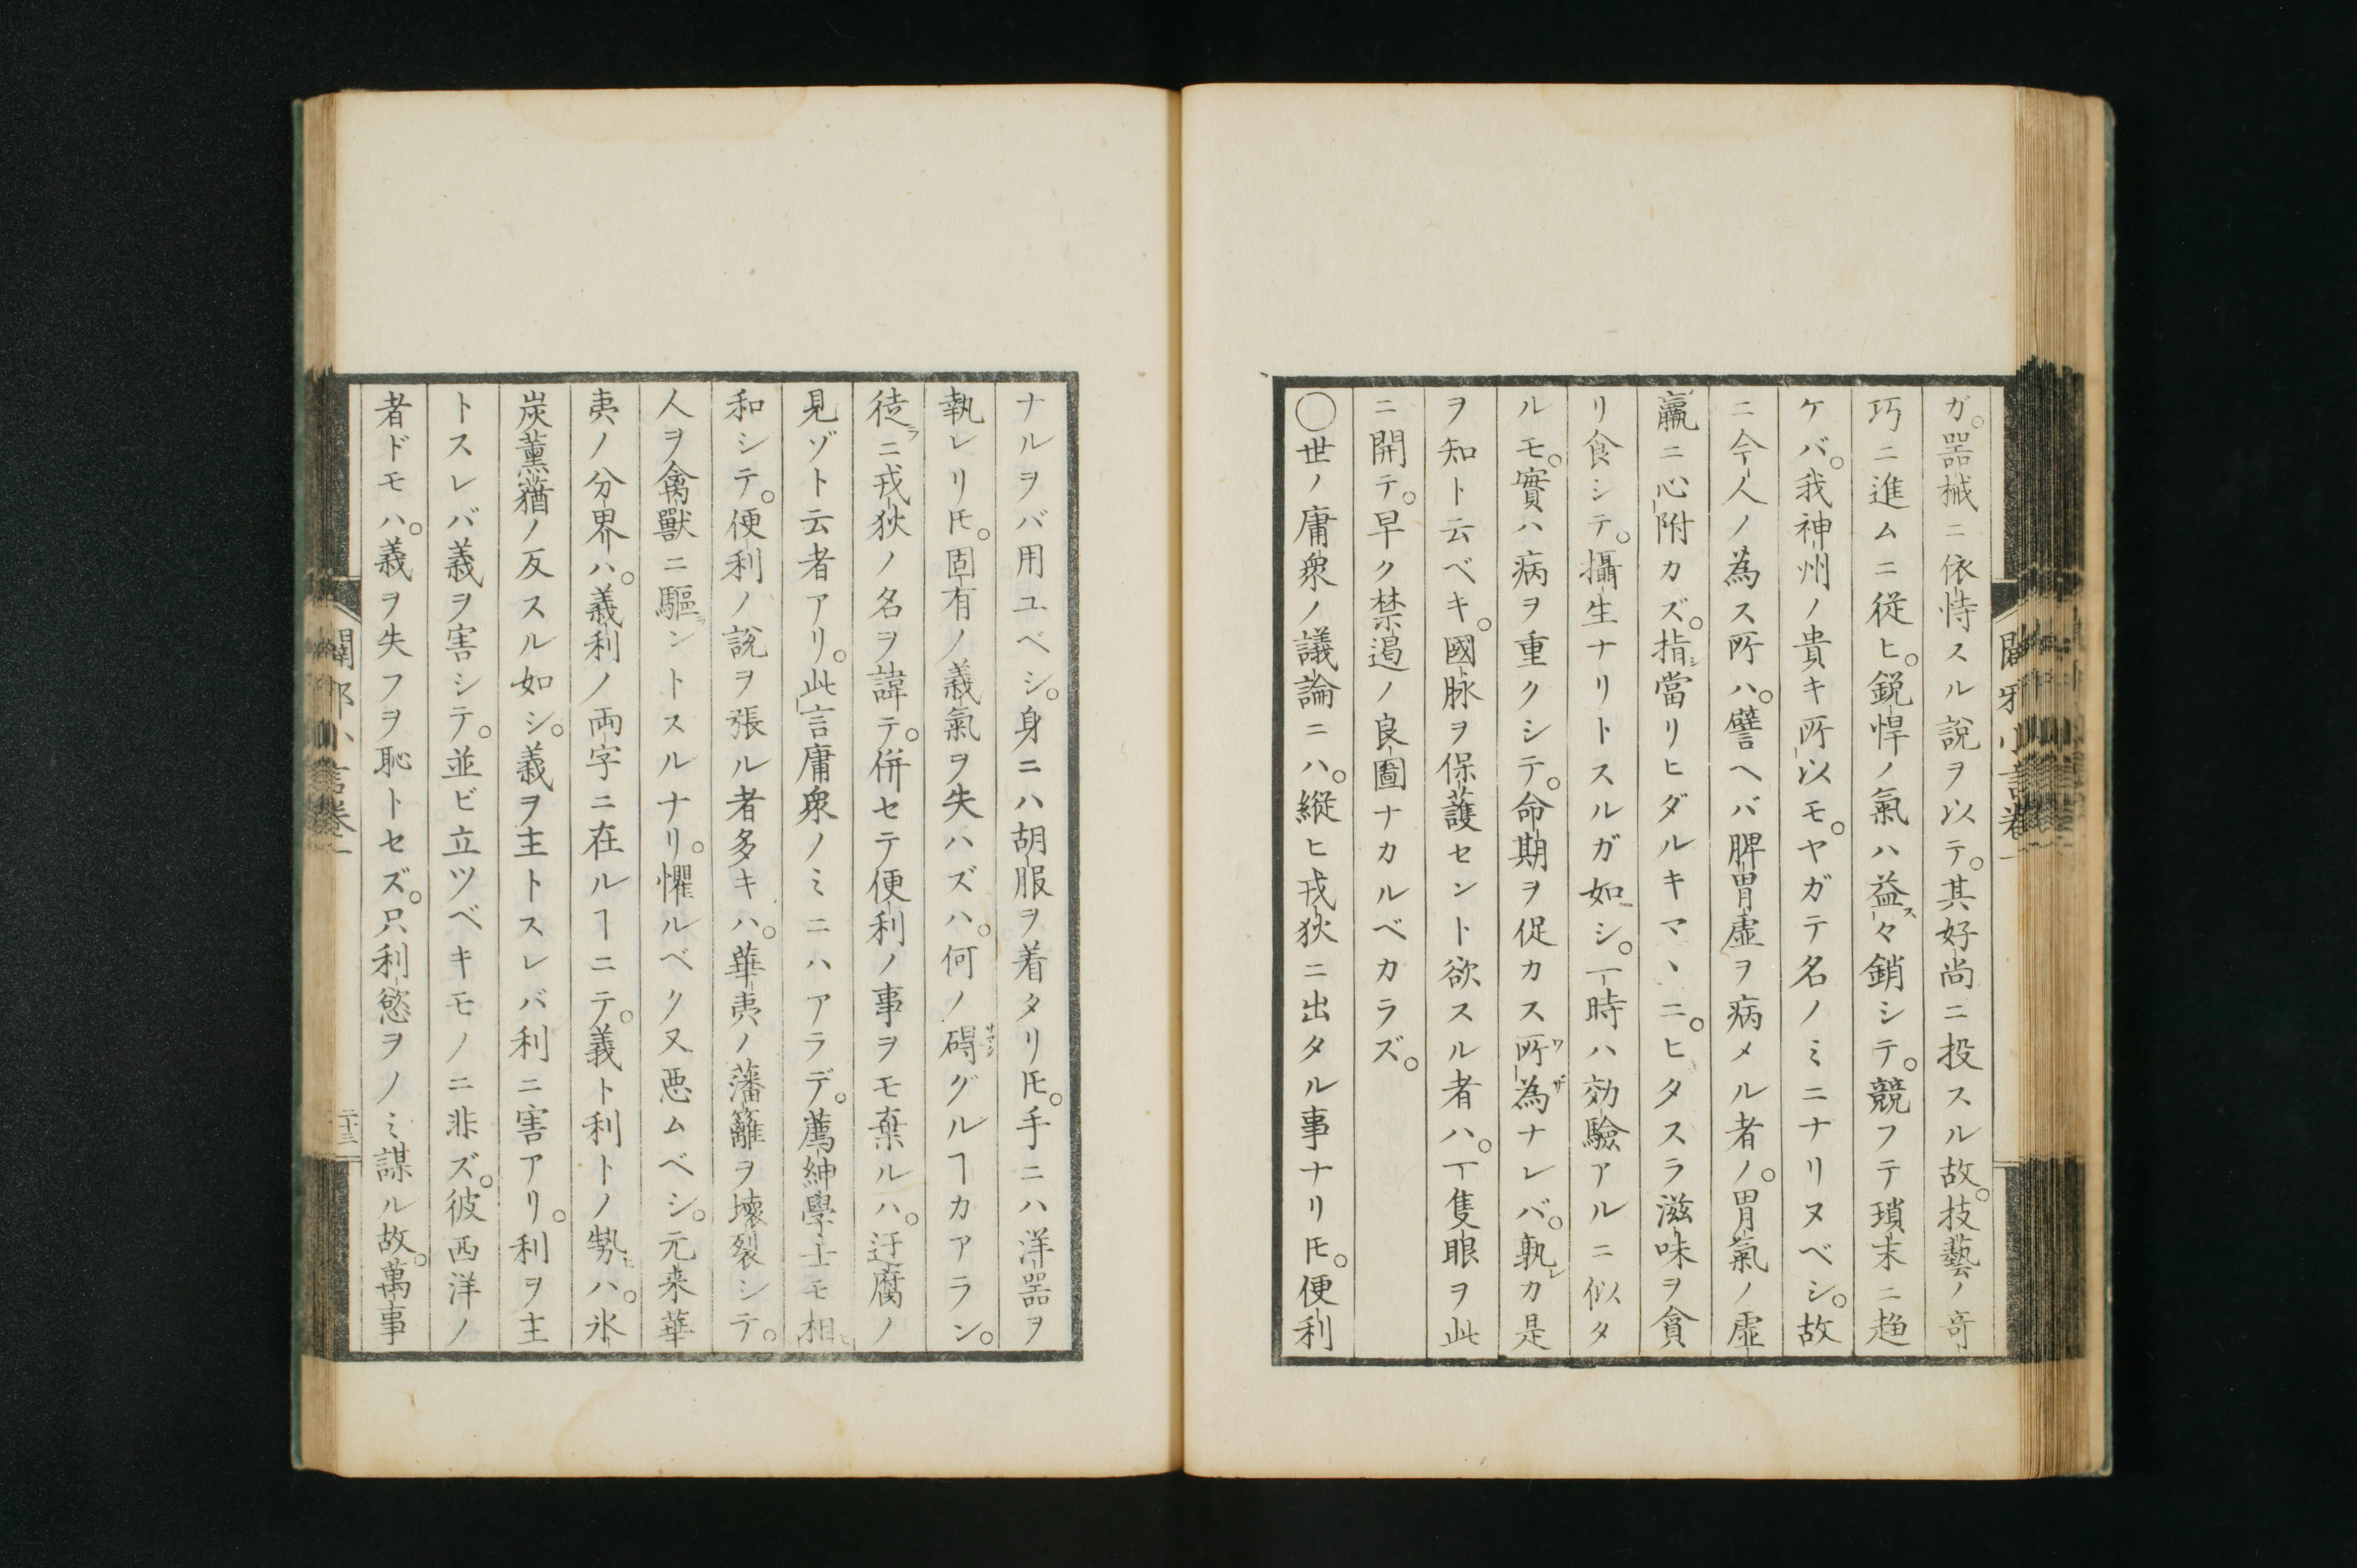 ガ。器械ニ依恃スル說ヲ以テ。其好尚ニ投スル故。技藝ノ奇
巧ニ進ムニ従ヒ。鋭悍ノ氣ハ益々銷シテ。競フテ瑣末ニ趋
ケバ。我神州ノ貴キ所以モ。ヤガテ名ノミニナリヌベシ。故
ニ今人ノ為ス所ハ。譬ヘバ脾胃虛ヲ病メル者ノ。胃氣ノ虛
羸ニ心附カズ。指當リヒダルキマヽニ。ヒタスラ滋味ヲ貪
リ食シテ。攝生ナリトスルガ如シ。一時ハ効驗アルニ似タ
ルモ。實ハ病ヲ重クシテ。命期ヲ促カス所為ナレバ。孰カ是
ヲ知ト云ベキ。國脉ヲ保護セント欲スル者ハ。一隻眼ヲ此
ニ開テ。早ク禁遏ノ良圖ナカルベカラズ。
〇世ノ庸衆ノ議論ニハ。縦ヒ戎狄ニ出タル事ナリ𪜈。便利
ナルヲバ用ユベシ。身ニハ胡服ヲ着タリ𪜈。手ニハ洋器ヲ
執レリ𪜈。固有ノ義氣ヲ失ハズハ。何ノ碍グルヿカアラン。
徒ニ戎狄ノ名ヲ諱テ。併セテ便利ノ事ヲモ棄ルハ。迂腐ノ
見ゾト云者アリ。此言庸衆ノミニハアラデ。薦紳學士モ相
和シテ。便利ノ說ヲ張ル者多キハ。華夷ノ藩籬ヲ壊裂シテ。
人ヲ禽獸ニ驅ントスルナリ。懼ルベク又悪ムベシ。元来華
夷ノ分界ハ。義利ノ両字ニ在ルヿニテ。義ト利トノ勢ハ。氷
炭薰蕕ノ反スル如シ。義ヲ主トスレバ利ニ害アリ。利ヲ主
トスレバ義ヲ害シテ。並ビ立ツベキモノニ非ズ。彼西洋ノ
者ドモハ。義ヲ失フヲ恥トセズ。只利慾ヲノミ謀ル故。萬事
闢邪小言卷一
二十三